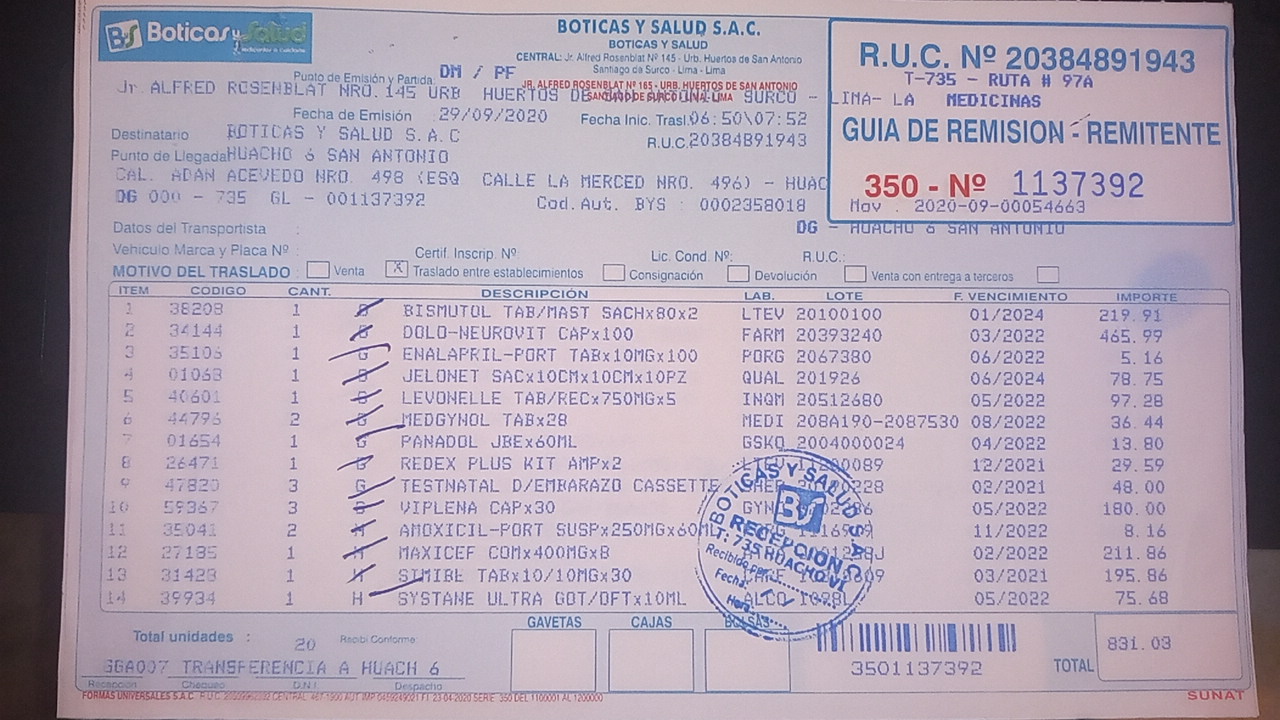 BS Boticas y Salud
BOTICAS Y SALUD S.A.C.
BOTICAS Y SALUD
CENTRAL: Jr. Alfred Rosenblat Nº 145 - Urb. Huertos de San Antonio
Santiago de Surco - Lima - Lima
R.U.C. Nº 20384891943
T-735 - RUTA # 97A
MEDICINAS
GUIA DE REMISION - REMITENTE
350 - Nº 1137392
Mov : 2020-09-00054663
Punto de Emisión y Partida: DM / PF
JR. ALFRED ROSENBLAT Nº 165 - URB. HUERTOS DE SAN ANTONIO
Jr ALFRED ROSENBLAT NRO. 145 URB HUERTOS DE SAN ANTONIO SURCO - LIMA- LA
Fecha de Emisión : 29/09/2020 Fecha Inic. Trasl.: 06:50\07:52
Destinatario : BOTICAS Y SALUD S.A.C R.U.C. 20384891943
Punto de Llegada: HUACHO 6 SAN ANTONIO
CAL. ADAN ACEVEDO NRO. 498 (ESQ CALLE LA MERCED NRO. 496) - HUAC
DG 000 - 735 GL - 001137392 Cod.Aut. BYS : 0002358018
DG - HUACHO 6 SAN ANTONIO
Datos del Transportista :
Vehiculo Marca y Placa Nº : Certif. Inscrip. Nº: Lic. Cond. Nº: R.U.C.:
MOTIVO DEL TRASLADO : Venta X Traslado entre establecimientos Consignación Devolución Venta con entrega a terceros
ITEM CODIGO CANT. DESCRIPCIÓN LAB. LOTE F. VENCIMIENTO IMPORTE
1 38208 1 BISMUTOL TAB/MAST SACHx80x2 LTEV 20100100 01/2024 219.91
2 34144 1 DOLO-NEUROVIT CAPx100 FARM 20393240 03/2022 465.99
3 35106 1 G ENALAPRIL-PORT TABx10MGx100 PORG 2067380 06/2022 5.16
4 01063 1 JELONET SACx10CMx10CMx10PZ QUAL 201926 06/2024 78.75
5 40601 1 LEVONELLE TAB/RECx750MGx5 INQM 20512680 05/2022 97.28
6 44796 2 MEDGYNOL TABx28 MEDI 208A190-2087530 08/2022 36.44
7 01654 1 G PANADOL JBEx60ML GSKO 2004000024 04/2022 13.80
8 26471 1 REDEX PLUS KIT AMPx2 12/2021 29.59
9 47820 3 G TESTNATAL D/EMBARAZO CASSETTE 02/2021 48.00
10 59367 3 VIPLENA CAPx30 05/2022 180.00
11 35041 2 AMOXICIL-PORT SUSPx250MGx60ML 11/2022 8.16
12 27185 1 MAXICEF COMx400MGx8 02/2022 211.86
13 31423 1 SIMIBE TABx10/10MGx30 03/2021 195.86
14 39934 1 H SYSTANE ULTRA GOT/OFTx10ML ALCO 05/2022 75.68
BOTICAS Y SALUD S.A.C.
BS
RECEPCIÓN
T: 735 HUACHO VI
Recibido por:
Fecha:
Hora:
Total unidades : 20 Recibi Conforme: GAVETAS CAJAS BOLSAS
3501137392
TOTAL 831.03
GGA007 TRANSFERENCIA A HUACH 6
Recepción Chequeo D.N.I. Despacho
FORMAS UNIVERSALES S.A.C.
SERIE: 350 DEL 1100001 AL 1200000
SUNAT